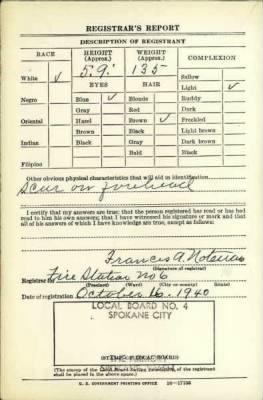 REGISTRAR'S REPORT
DESCRIPTION OF REGISTRANT
RACE HEIGHT (Approx.) WEIGHT (Approx.) COMPLEXION
White ✓ 5. 9. 135 Sallow
Light ✓
EYES HAIR
Negro Blue ✓ Blonde Ruddy
Gray Red Dark
Oriental Hazel Brown ✓ Freckled
Brown Black Light brown
Indian Black Gray Dark brown
Bald Black
Filipino
Other obvious physical characteristics that will aid in identification
Scar on forehead
I certify that my answers are true; that the person registered has read or has had read to him his own answers; that I have witnessed his signature or mark and that all of his answers of which I have knowledge are true, except as follows:
Francis A.
(Signature of registrar)
Registrar for Fire Station No 6
(Precinct) (Ward) (City or county) (State)
Date of registration October 16, 1940
LOCAL BOARD NO. 4
SPOKANE CITY
(STAMP OF LOCAL BOARD)
(The stamp of the Local Board having jurisdiction of the registrant shall be placed in the above space.)
U. S. GOVERNMENT PRINTING OFFICE 16—17105